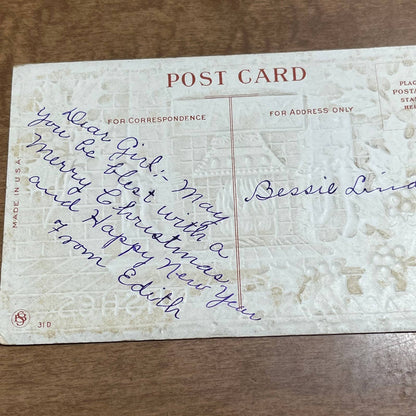 POST CARD
FOR CORRESPONDENCE
FOR ADDRESS ONLY
PLAC
POSTA
STAM
HER
Dear Girl:- May
you be blest with a
Merry Christmas
and Happy New Year
From Edith
Bessie Lind
MADE IN U.S.A.
31D